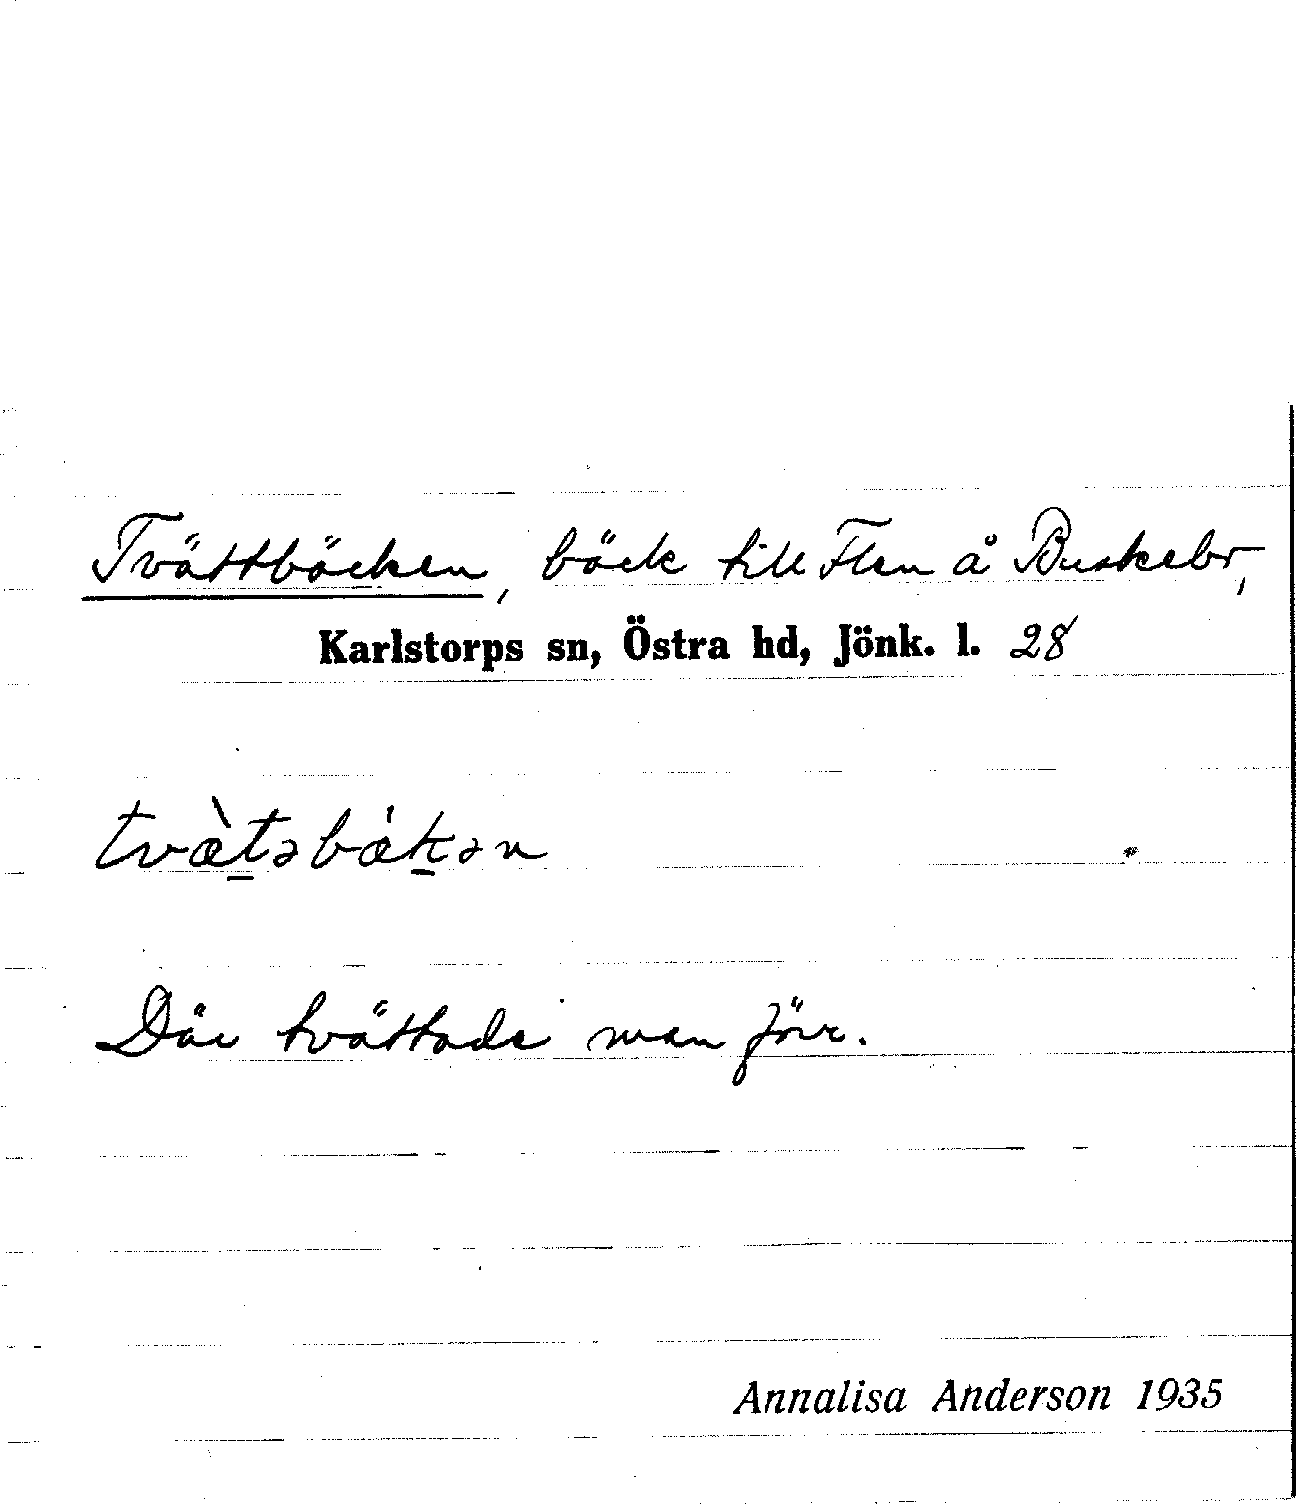 Tvättbäcken, bäck till Flen å Buskebr,
Karlstorps sn, Östra hd, Jönk. l. 28
tvæ̀t̲əbǽk̲ən
Där tvättade man förr.
Annalisa Anderson 1935